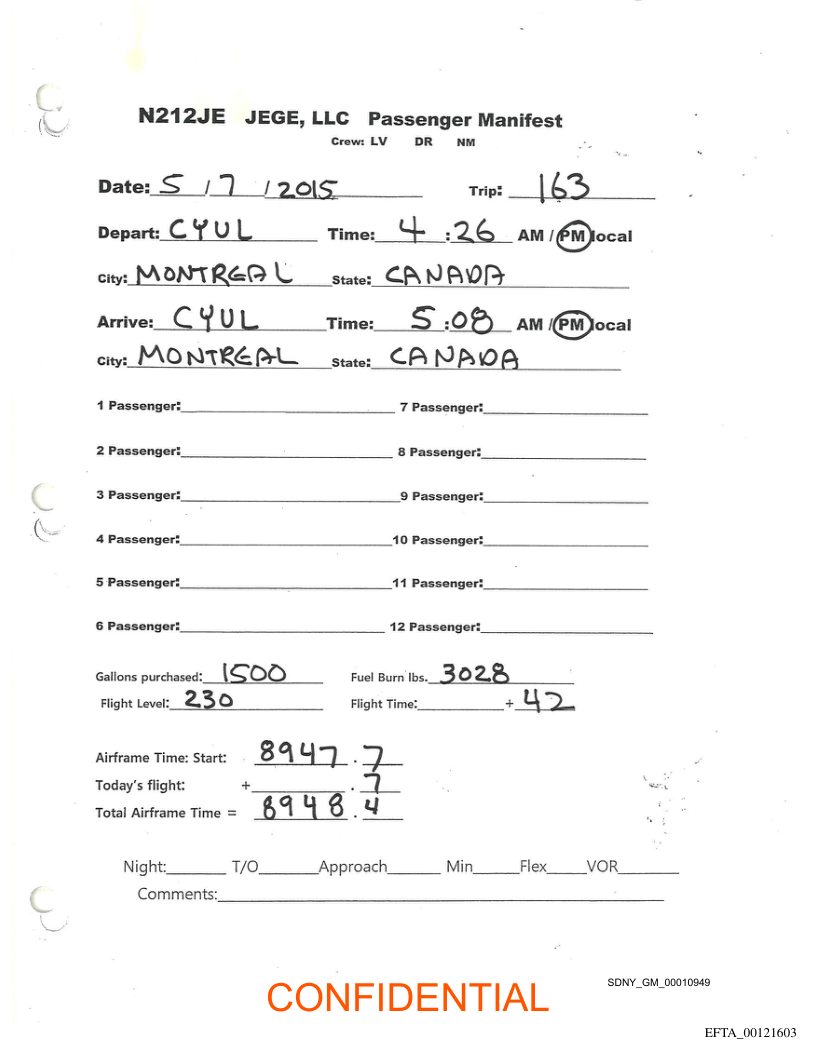 N212JE JEGE, LLC Passenger Manifest
Crew: LV DR NM
Date: 5 / 7 / 2015 Trip: 163
Depart: CYUL Time: 4 : 26 AM / PM local
City: MONTREAL State: CANADA
Arrive: CYUL Time: 5 : 08 AM / PM local
City: MONTREAL State: CANADA
1 Passenger: 7 Passenger:
2 Passenger: 8 Passenger:
3 Passenger: 9 Passenger:
4 Passenger: 10 Passenger:
5 Passenger: 11 Passenger:
6 Passenger: 12 Passenger:
Gallons purchased: 1500 Fuel Burn lbs. 3028
Flight Level: 230 Flight Time: + 42
Airframe Time: Start: 8947 . 7
Today's flight: + . 7
Total Airframe Time = 8948 . 4
Night: T/O Approach Min Flex VOR
Comments:
SDNY_GM_00010949
CONFIDENTIAL
EFTA_00121603